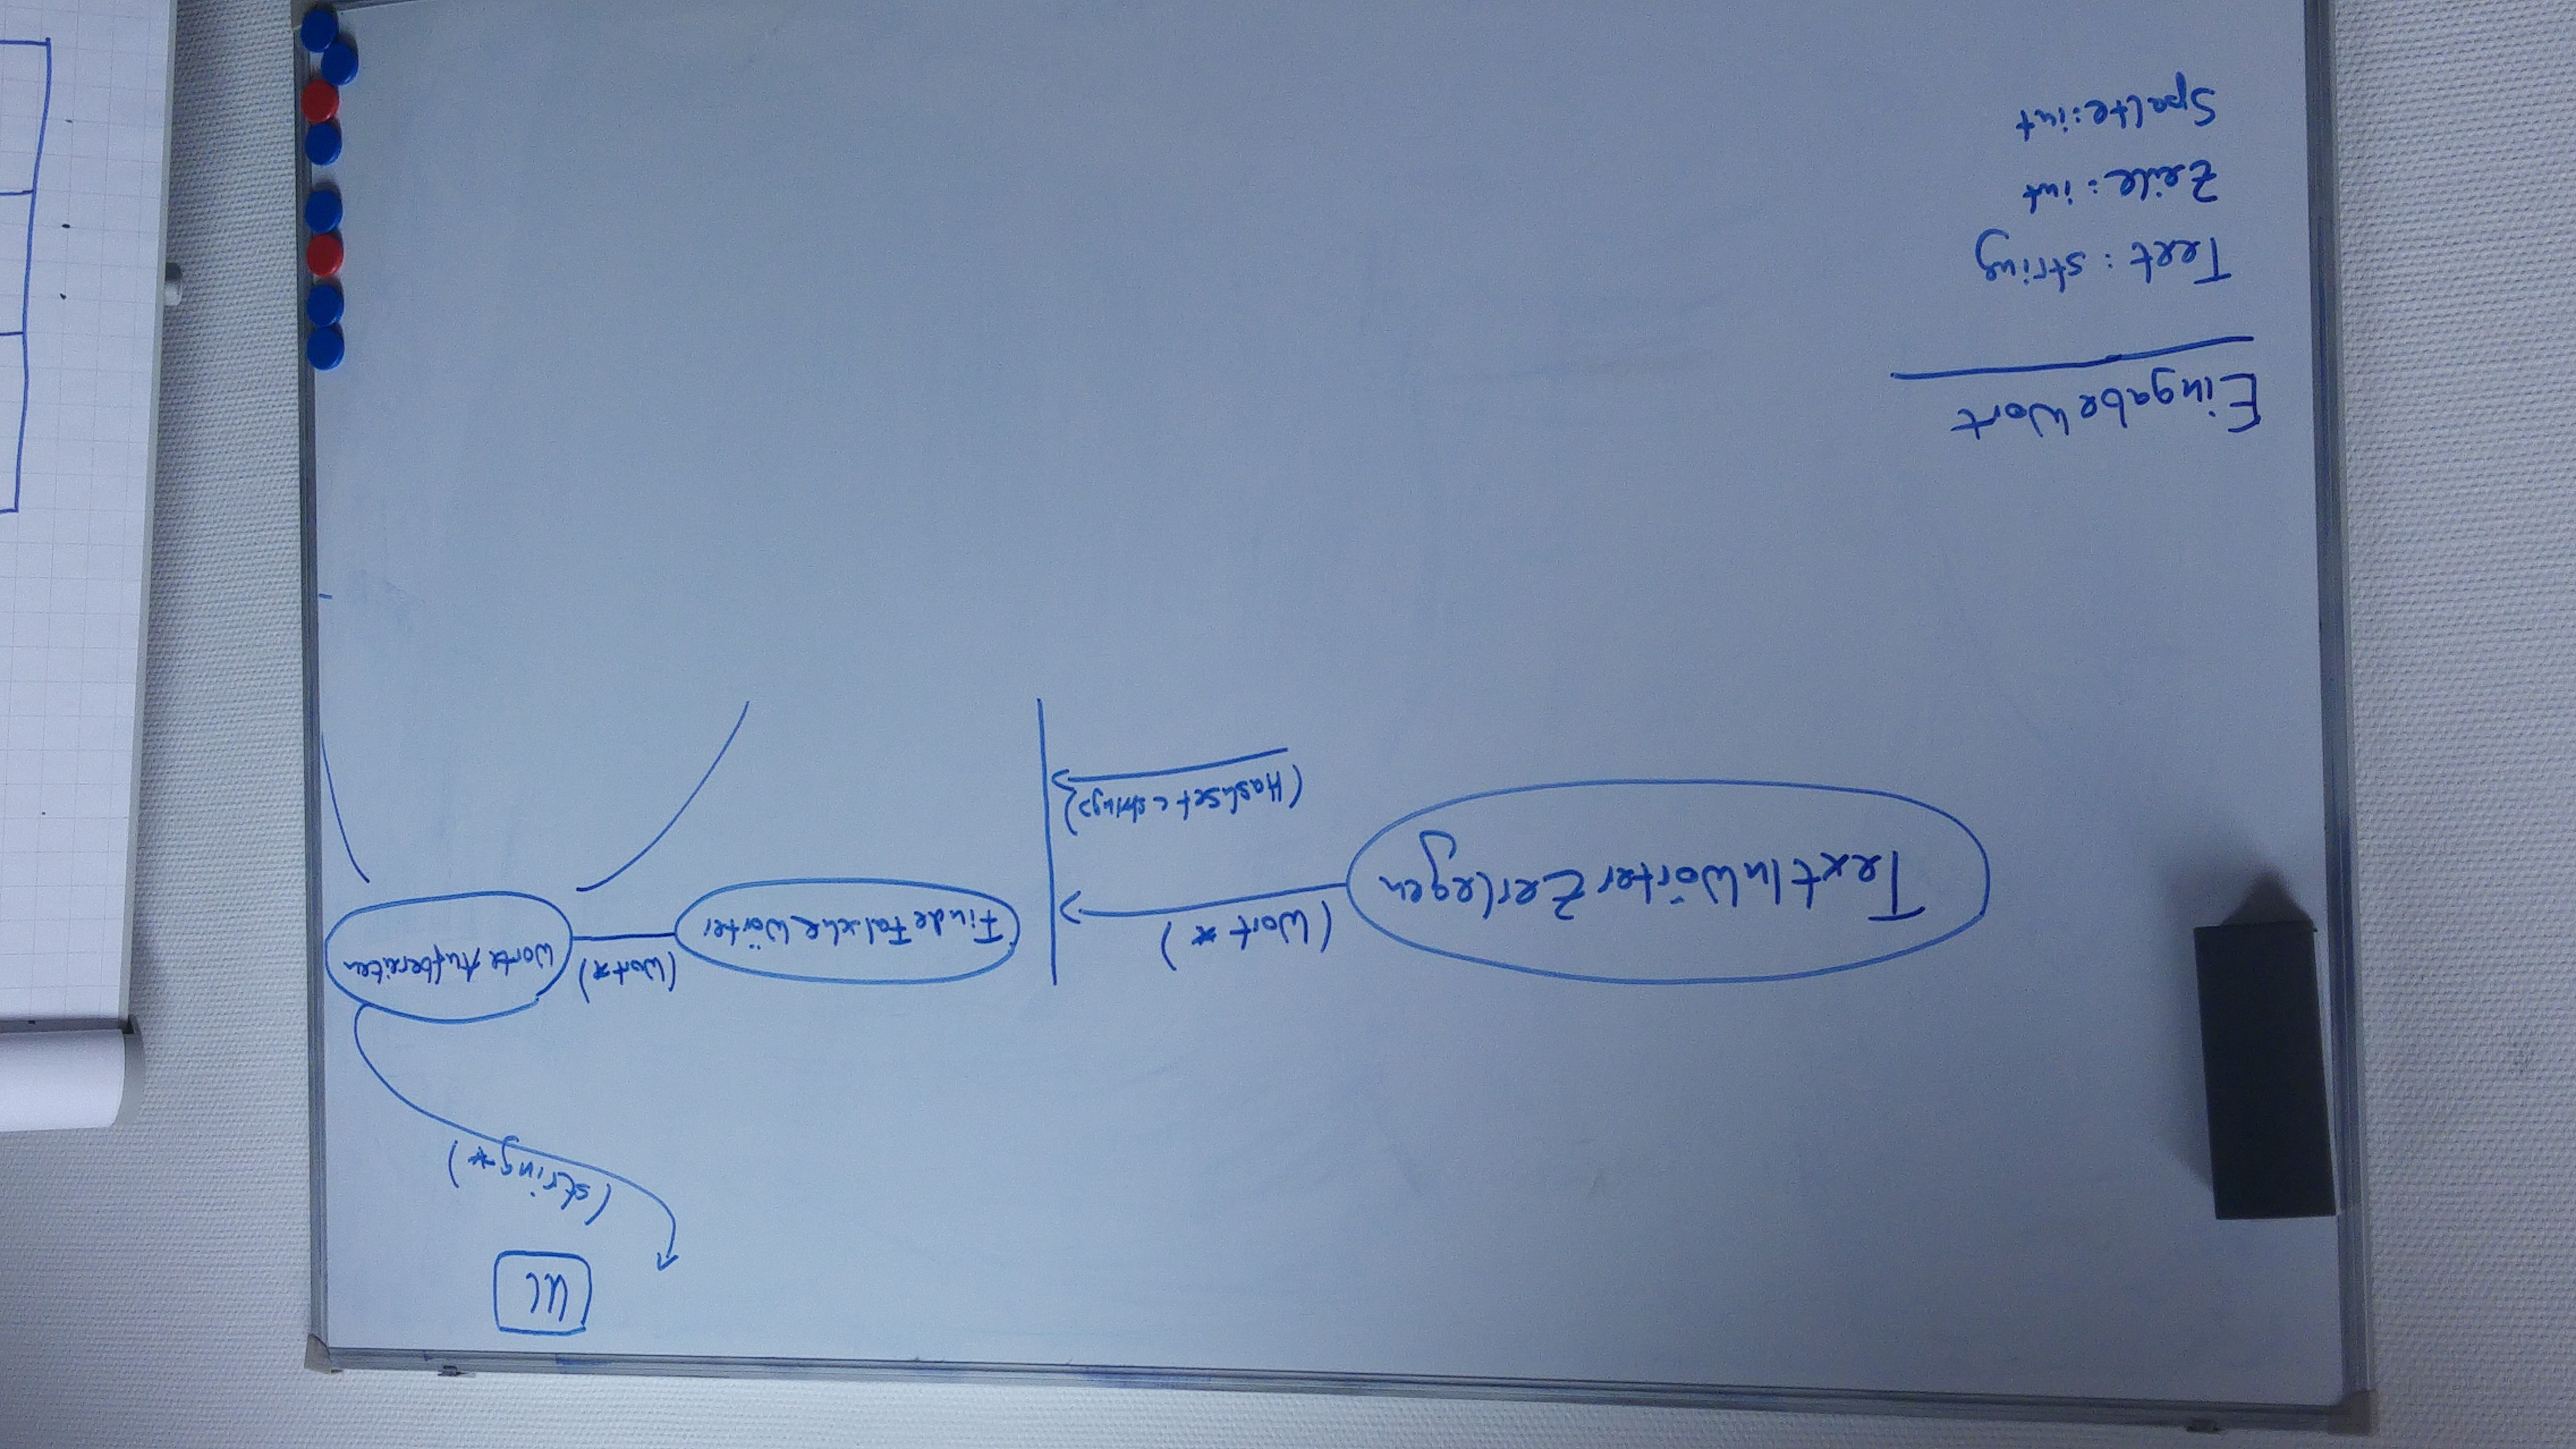 UI
(string*)
TextInWörterZerlegen
(Wort *)
(Hashset<string>)
FindeFalscheWörter
(Wort*)
WorteAufbereiten
EingabeWort
Text: string
Zeile: int
Spalte: int